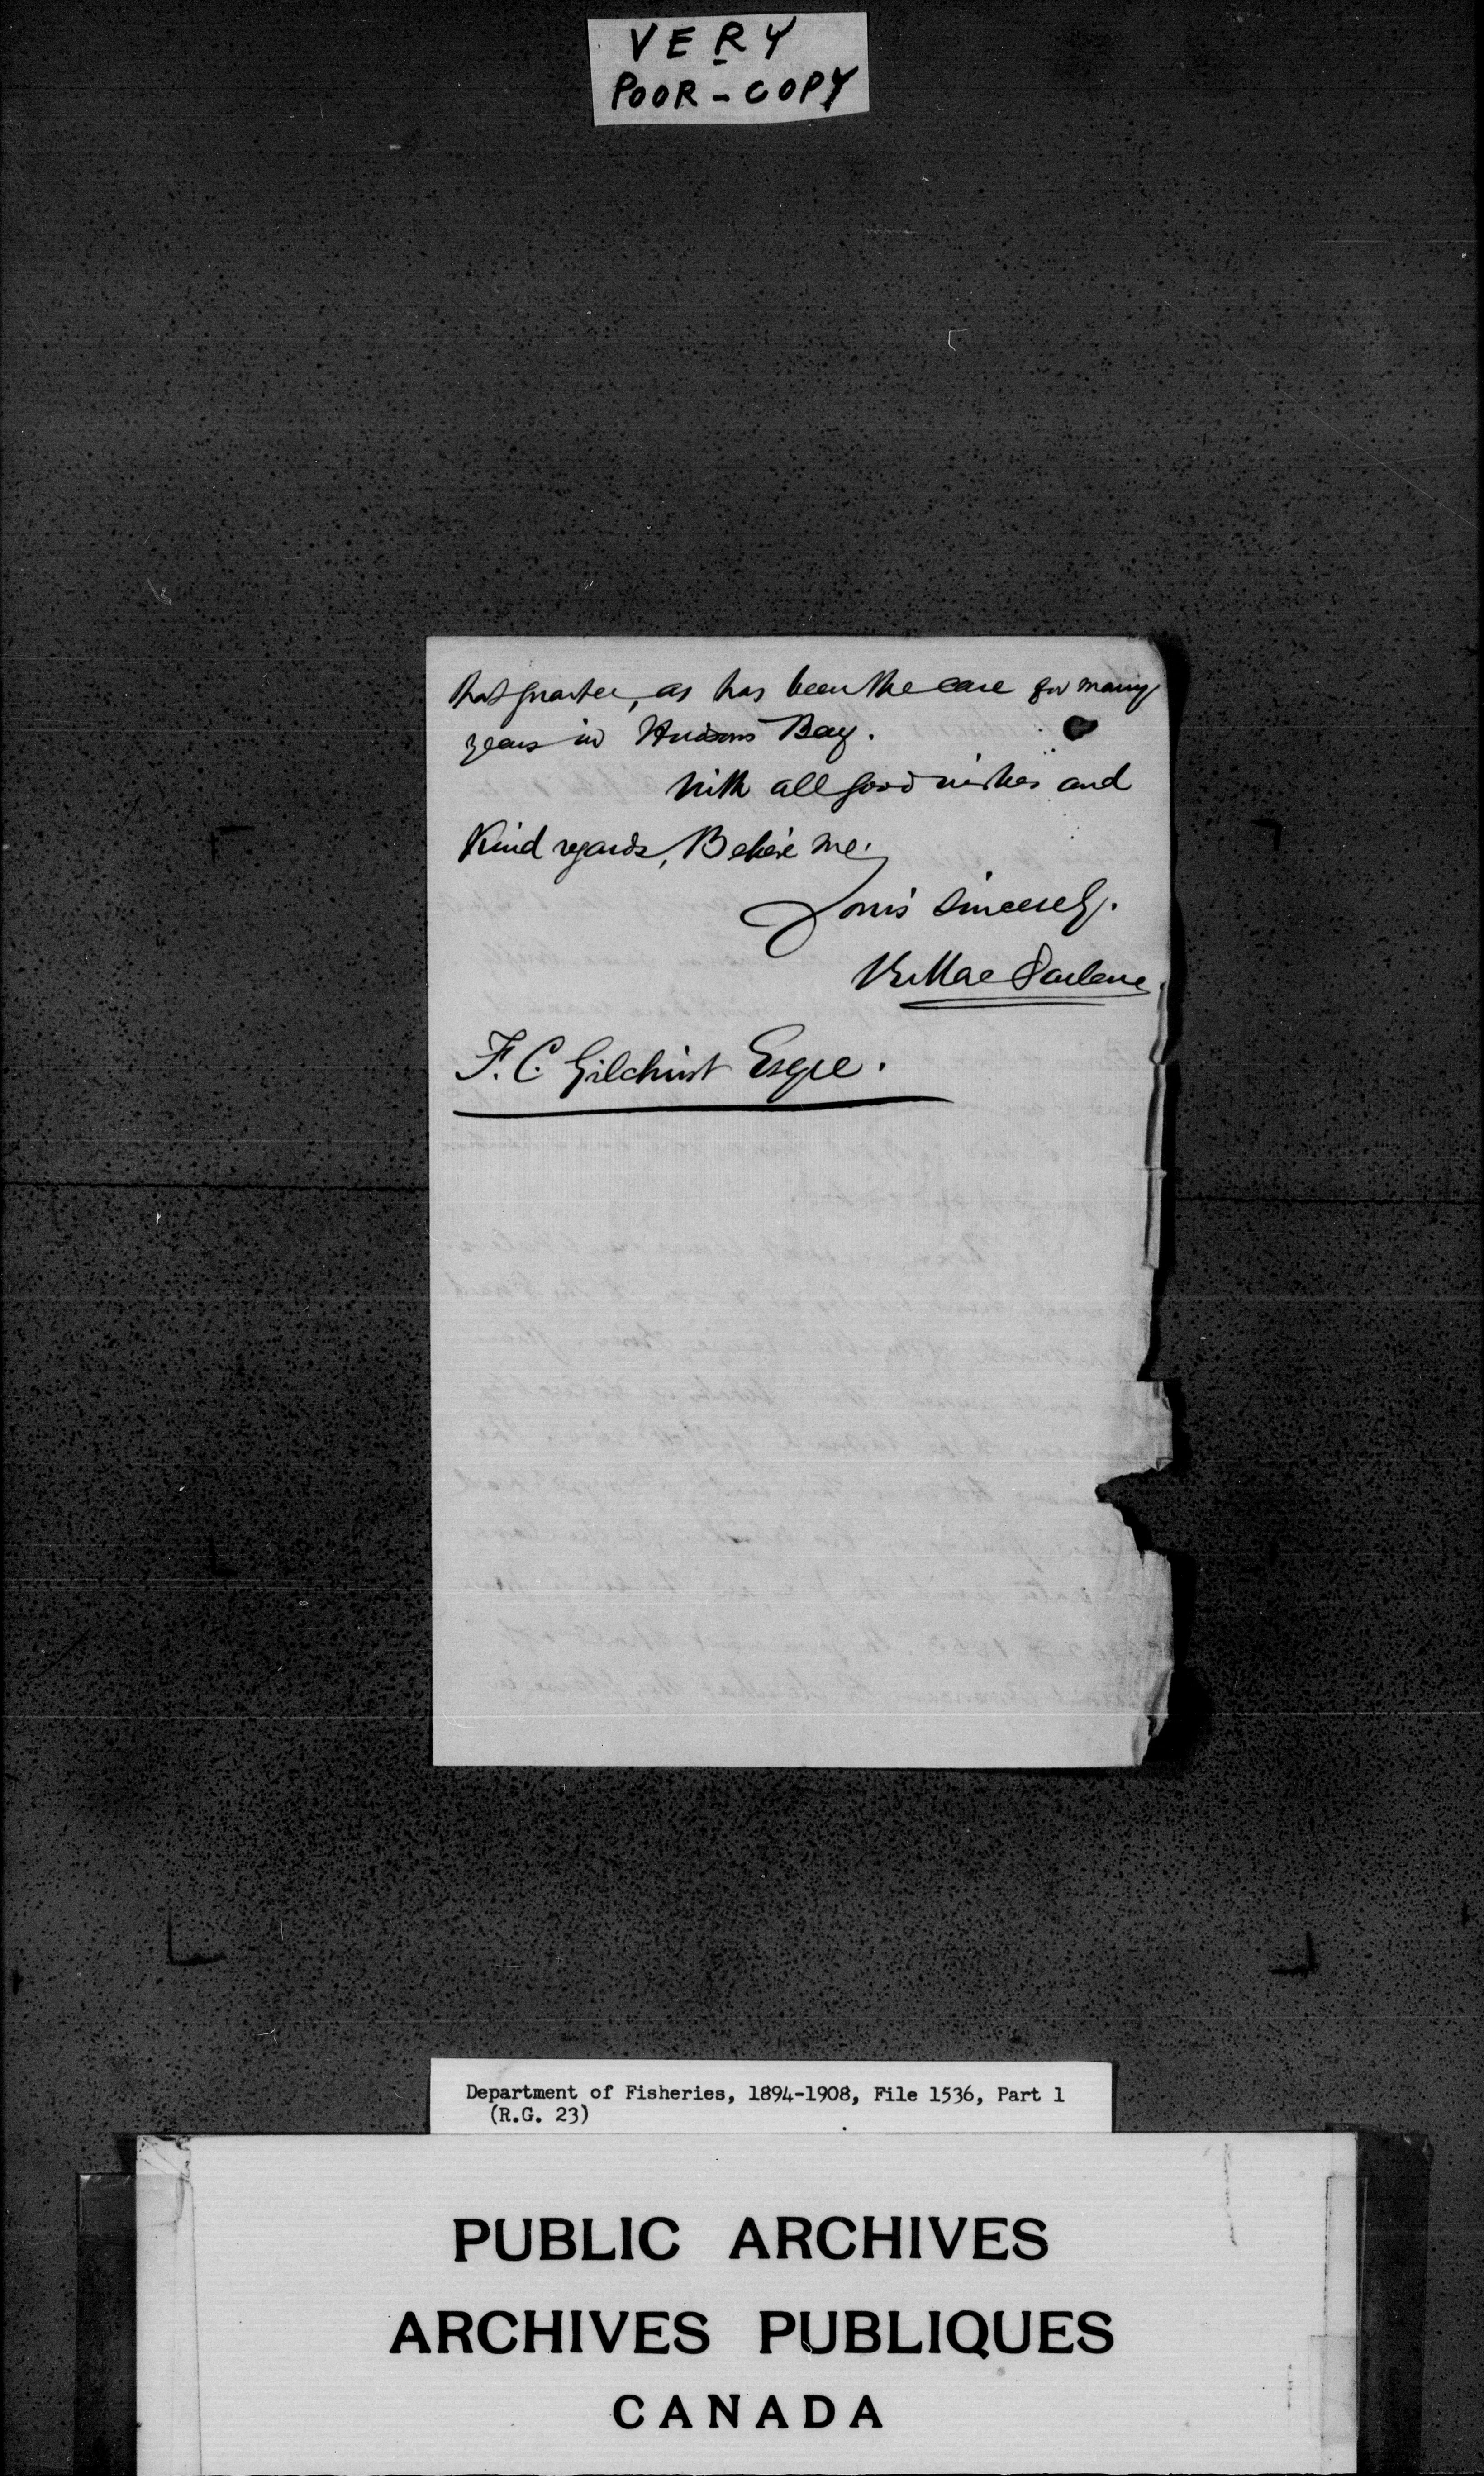 VERY
POOR - COPY
that quarter, as has been the case for many
years in Hudsons Bay.
With all good wishes and
Kind regards, Believe me,
Yours sincerely.
MacFarlane
F. C. Gilchrist Esqre.
Department of Fisheries, 1894-1908, File 1536, Part 1
(R.G. 23)
PUBLIC ARCHIVES
ARCHIVES PUBLIQUES
CANADA